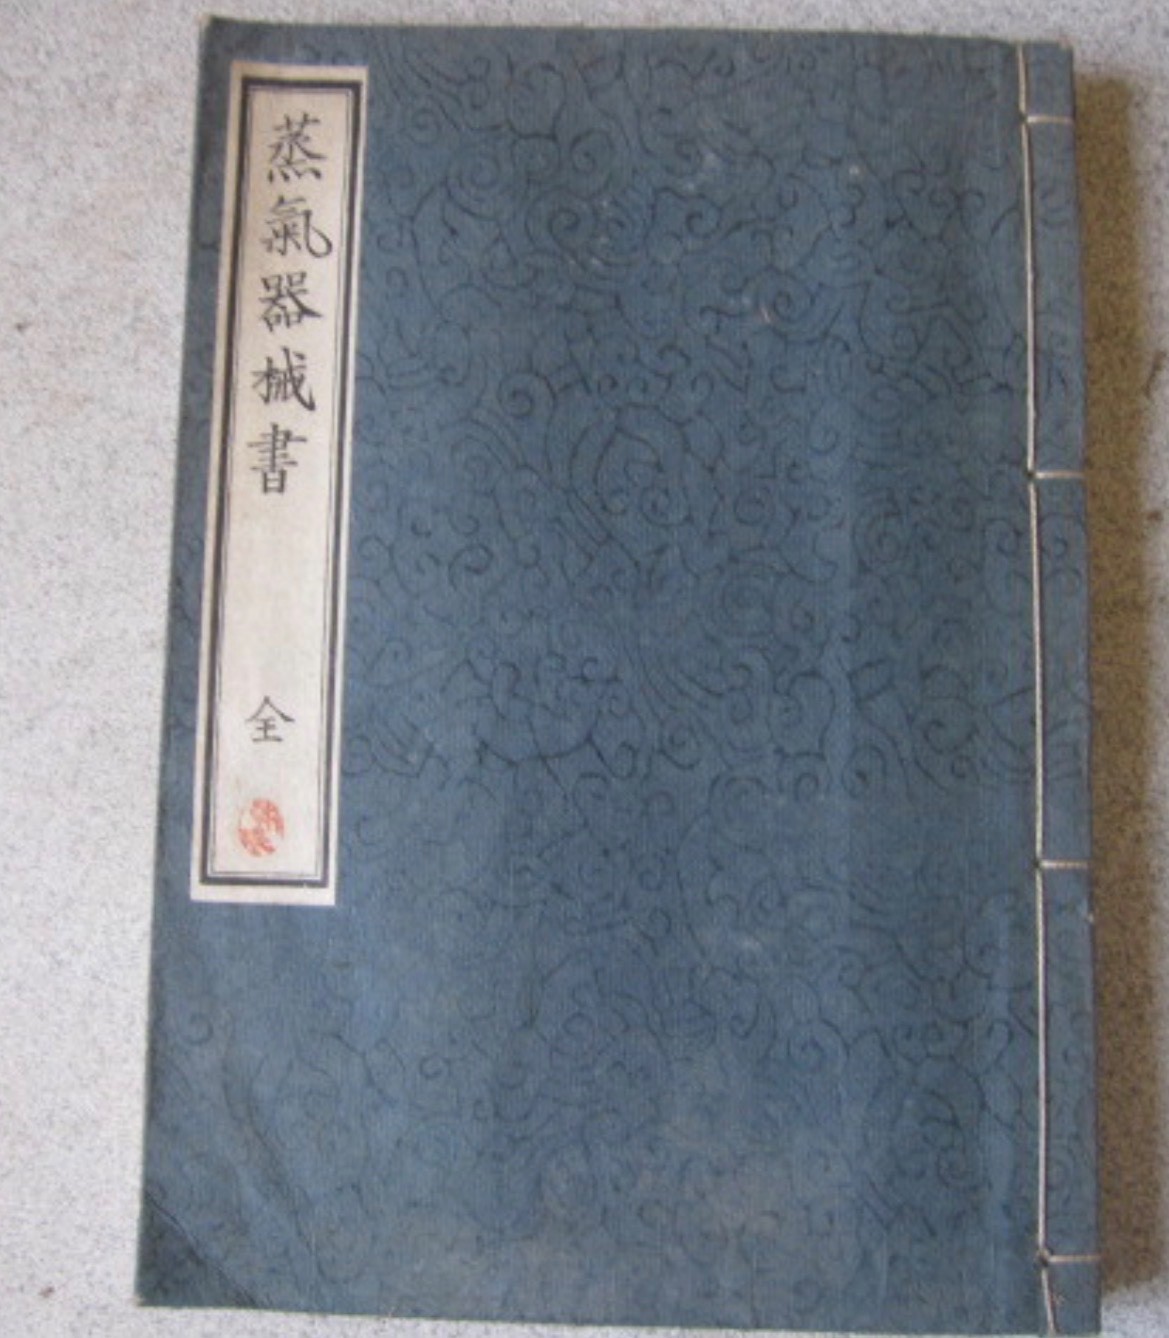 蒸氣器械書
全